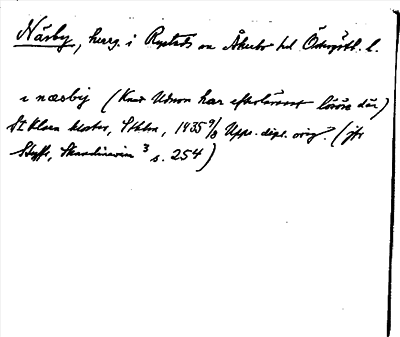 Näsby, herrg. i Rystads sn Åkerbo hd Östergötl. l.
i næsby (Knut Udson har efterlämnat lösöre där)
St Klara kloster, Sthlm, 1435 9/8 Upps. dipl. orig. (jfr
Styffe, Skandinavien 3 s. 254)